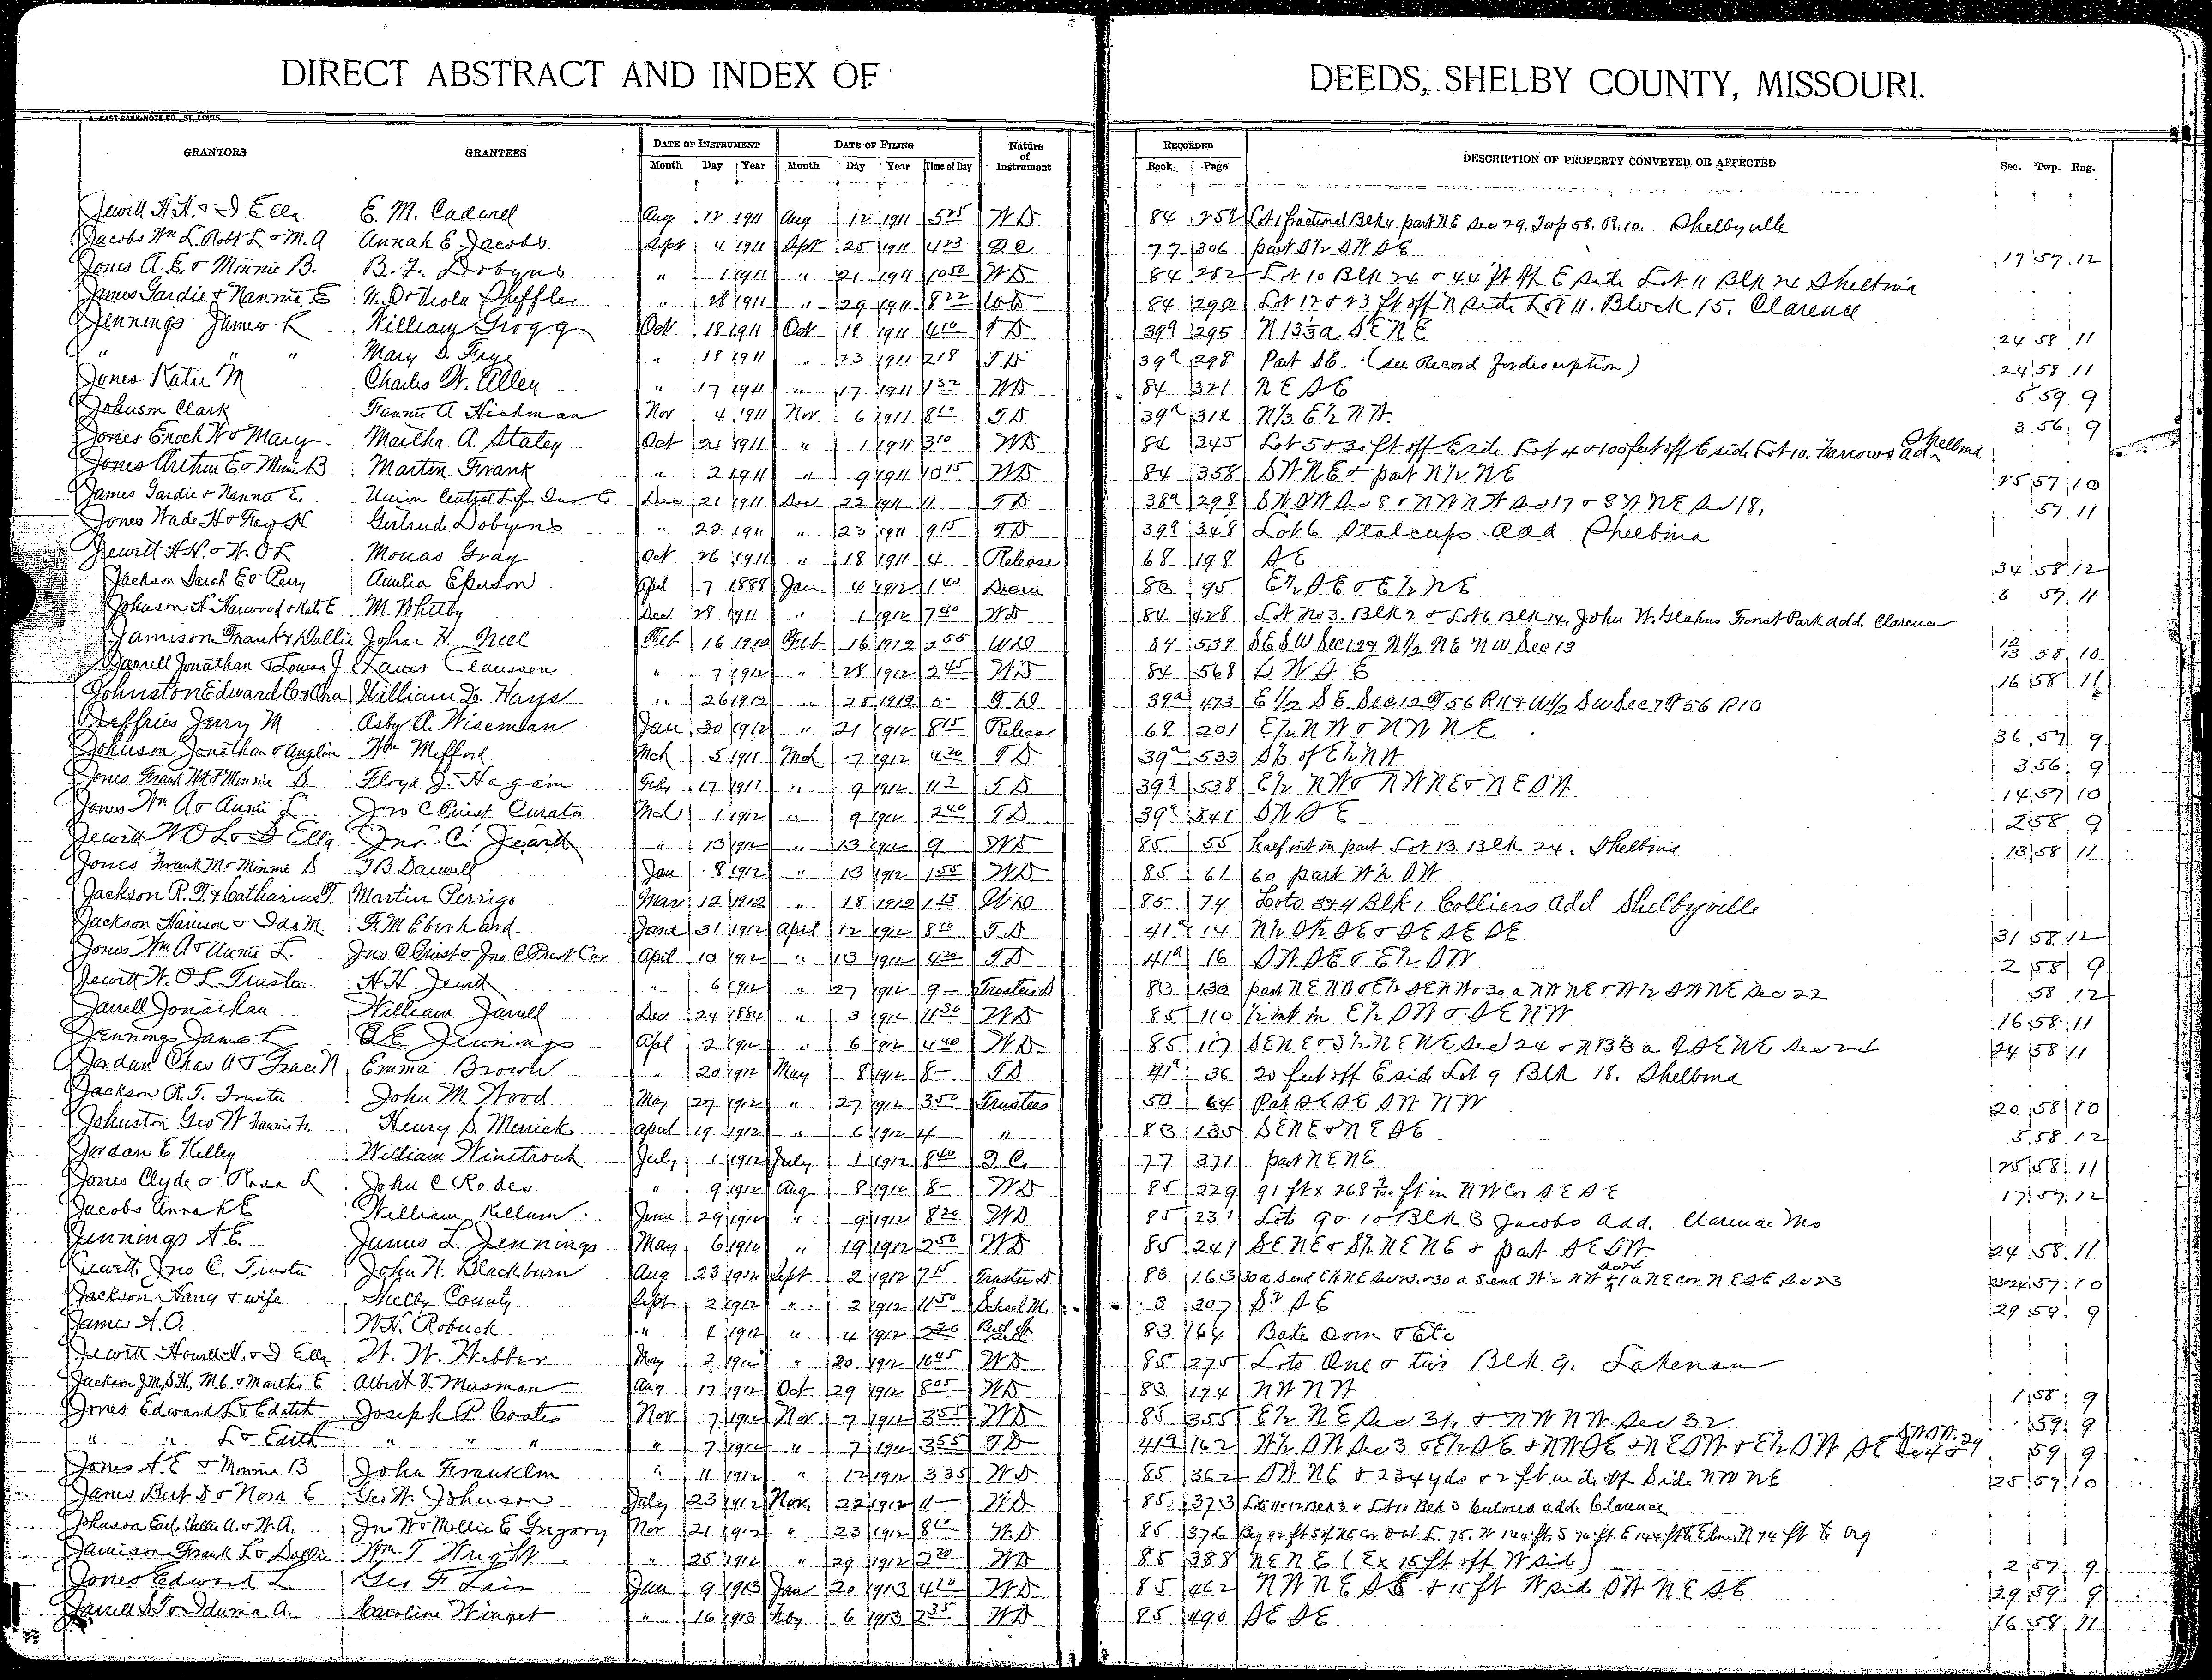 DIRECT ABSTRACT AND INDEX OF DEEDS, SHELBY COUNTY, MISSOURI.
A. GAST BANK NOTE CO., ST. LOUIS
GRANTORS GRANTEES DATE OF INSTRUMENT DATE OF FILING Nature of Instrument RECORDED DESCRIPTION OF PROPERTY CONVEYED OR AFFECTED Sec. Twp. Rng.
Month Day Year Month Day Year Time of Day Book Page
Jewitt H.H. & I Ella E. M. Cadwell Aug 12 1911 Aug 12 1911 5 25 WD 84 Lot 1 fractional Blk 4 part NE Sec 29. Twp 58. R. 10. Shelbyville
Jacobs Wm L. Robt L & M. A Annah E Jacobs Sept 4 1911 Sept 25 1911 4 23 QC 77 306 part S½ SW SE 17 57 12
Jones A. E. & Minnie B. B. F. Dobyns " 1 1911 " 21 1911 10 50 WD 84 282 Lot 10 Blk 24 & 44 ft off E side Lot 11 Blk 24 Shelbina
James Gardie & Nannie E Viola Sheffler " 28 1911 " 29 1911 8 22 WD 84 290 Lot 12 & 23 ft off N side Lot 11. Block 15. Clarence
Jennings James L William Grogg Oct 18 1911 Oct 18 1911 4 10 TD 39a 295 N 13⅓ a SE NE 24 58 11
" " " Mary S. Frye " 18 1911 " 23 1911 2 18 TD 39a 298 Part SE. (see Record for description) 24 58 11
Jones Katie M Charles W. Allen " 17 1911 " 17 1911 1 32 WD 84 321 NE SE 5 59 9
Johnson Clark Fannie A Hickman Nov 4 1911 Nov 6 1911 8 10 TD 39a 314 N⅓ E½ NW. 3 56 9
Jones Enoch W & Mary Martha A. Staley Oct 21 1911 " 1 1911 3 10 WD 84 345 Lot 5 & 30 ft off E side Lot 4 & 100 feet off E side Lot 10. Farrows ad Shelbina
Jones Arthur E & Minnie B Martin Frank " 2 1911 " 9 1911 10 15 WD 84 358 SW NE & part N½ NE 25 57 10
James Gardie & Nannie E. Union Central Life Ins Co Dec 21 1911 Dec 22 1911 11 TD 38a 298 SW SW Sec 8 & NW NW Sec 17 & NE Sec 18, 57 11
Jones Wade H & Fay N Gertrude Dobyns " 22 1911 " 23 1911 9 15 TD 39a 348 Lot 6 Stalcups add Shelbina
Jewitt H.H. & W. O L Monas Gray Oct 26 1911 " 18 1911 4 Release 68 198 SE 34 58 12
Jackson Sarah E & Perry Amelia Eperson Apl 7 1888 Jan 4 1912 1 40 83 95 E½ SE & E½ NE 6 57 11
Johnson H Harwood & Kate E M. Whitby Dec 28 1911 " 1 1912 7 40 WD 84 428 Lot No 3. Blk 2 & Lot 6 Blk 14, John W. Glahns Forest Park add. Clarence
Jamison Frank & Dollie John H. Neel Feb 16 1912 Feb 16 1912 2 55 WD 84 539 SE SW Sec 12 & N½ NE NW Sec 13 12 13 58 10
Jarrell Jonathan & Louisa J Lawis Claussen " 7 1912 " 28 1912 2 45 WD 84 568 SW SE 16 58 11
Johnston Edward C & Ora William D. Hays " 26 1912 " 28 1912 5- TD 39a 473 E 1/2 SE Sec 12 T 56 R 11 & W 1/2 SW Sec 7 T 56 R 10
Jeffries Jerry M Asby A. Wiseman Jan 30 1912 " 21 1912 8 15 Release 68 201 E½ NW & NW NE 36 57 9
Johnson Jonathan & Anglin Wm Mefford Mch 5 1911 Mch 7 1912 4 20 TD 39a 533 S⅓ of E½ NW 3 56 9
Jones Frank M & Minnie S Floyd J. Hagain Feby 17 1911 " 9 1912 TD 39a 538 E½ NW & NW NE & NE SW 14 57 10
Jones Wm A & Annie L Jno C Priest Curator Mch 1 1912 " 9 1912 2 40 TD 39a 541 SW SE 2 58 9
Jewitt W O L & I Ella Jno. C. Jewitt " 13 1912 " 13 1912 9 WD 85 55 Half int in part Lot 13 Blk 24. Shelbina 13 58 11
Jones Frank M & Minnie S T B Damrell Jan 8 1912 " 13 1912 1 55 WD 85 61 60 part W½ SW
Jackson R. T. & Catharine T. Martin Perrigo Mar 12 1912 " 18 1912 WD 85 74 Lots 3 & 4 Blk 1 Colliers add Shelbyville
Jackson Harrison & Ida M F. M Eberhard Jany 31 1912 April 12 1912 8 10 TD 41a 14 N½ S½ SE & SE SE SE 31 58 12
Jones Wm A & Annie L. Jno C Priest & Jno C Priest Cur April 10 1912 " 13 1912 4 20 TD 41a 16 SW SE & E½ SW 2 58 9
Jewitt W. O L. Trustee H. H. Jewitt " 6 1912 " 27 1912 9- Trustees D 83 130 part NE NW & E½ SE NW & 30 a NW NE & W½ SW NE Sec 22 58 12
Jarrell Jonathan William Jarrell Dec 24 1884 " 3 1912 11 30 WD 85 110 ½ int in E½ SW & SE NW 16 58 11
Jennings James L A. E Jennings Apl 2 1912 " 6 1912 4 40 WD 85 117 SE NE & S½ NE NE Sec 24 & N 13⅓ a of SE NE Sec 24 24 58 11
Jordan Chas A & Grace N Emma Brown " 20 1912 May 8 1912 8- TD 41a 36 20 feet off E side Lot 9 Blk 18. Shelbina
Jackson R. T. Trustee John M. Wood May 27 1912 " 27 1912 3 50 Trustees 50 64 Part SE SE SW NW 20 58 10
Johnston Geo W Henry S. Merrick April 19 1912 " 6 1912 4 " 83 135 SE NE & NE SE 5 58 12
Jordan E. Kelley William Winetrout July 1 1912 July 1 1912 8 40 Q. C. 77 371 part NE NE 25 58 11
Jones Clyde & Rosa L John C Rodes " 9 1912 Aug 8 1912 8- WD 85 229 91 ft x 268 ft in NW Cor SE SE 17 57 12
Jacobs Annah E William Killum June 29 1912 " 9 1912 8 20 WD 85 231 Lots 9 & 10 Blk 3 Jacobs Add. Clarence Mo
Jennings A. E. James L. Jennings May 6 1912 " 19 1912 2 50 WD 85 241 SE NE & S½ NE NE & part SE SW 24 58 11
Jewitt Jno C. Trustee John W. Blackburn Aug 23 1912 Sept 2 1912 7 15 Trustees D 83 163 30 a S end E½ NE Sec 23. & 30 a S end W½ NW & 1 a NE cor NE SE Sec 23 23&24 57 10
Jackson Harry & wife Shelby County Sept 2 1912 " 2 1912 11 50 School M. 3 207 SE 29 59 9
James A. O. W. H. Robuck " 4 1912 " 4 1912 2 30 83 164 Bake Oven & Etc
Jewitt Howell H. & I Ella W. W. Webber May 2 1912 " 20 1912 10 45 WD 85 275 Lots One & two Blk 9. Lakenan
Jackson J M, S H, M C. & Martha E Albert V. Musman Aug 17 1912 Oct 29 1912 8 05 WD 83 174 NW NW 1 58 9
Jones Edward L & Edith Joseph P. Coates Nov 7 1912 Nov 7 1912 3 55 WD 85 355 E½ NE Sec 31, & NW NW. Sec 32 59 9
" " L & Edith " " " " 7 1912 " 7 1912 3 55 TD 41a 162 59 9
Jones A. E & Minnie B John Franklin " 11 1912 " 12 1912 3 35 WD 85 362 SW NE & 234 yds & 2 ft wide off S side NW NE 25 57 10
James Bert S & Nora E Geo W. Johnson July 23 1912 Nov. 22 1912 11- WD 85 373 Lots 11 & 12 Blk 3 & Lot 10 Blk 3 add. Clarence
Johnson Earl, Sallie A. & W. A. Jno W & Mollie E Gregory Nov 21 1912 " 23 1912 8 10 W. D 85 376
Jamison Frank L & Dollie Wm T Wright " 25 1912 " 29 1912 2 20 WD 85 388 NE NE (Ex 15 ft off W side) 2 57 9
Jones Edward L Geo F Lain Jan 9 1913 Jan 20 1913 4 10 WD 85 462 NW NE SE & 15 ft W side SW NE SE 29 59 9
Jarrell S. T & Iduma A. Caroline Winget " 16 1913 Feby 6 1913 2 35 WD 85 490 SE SE 16 58 11